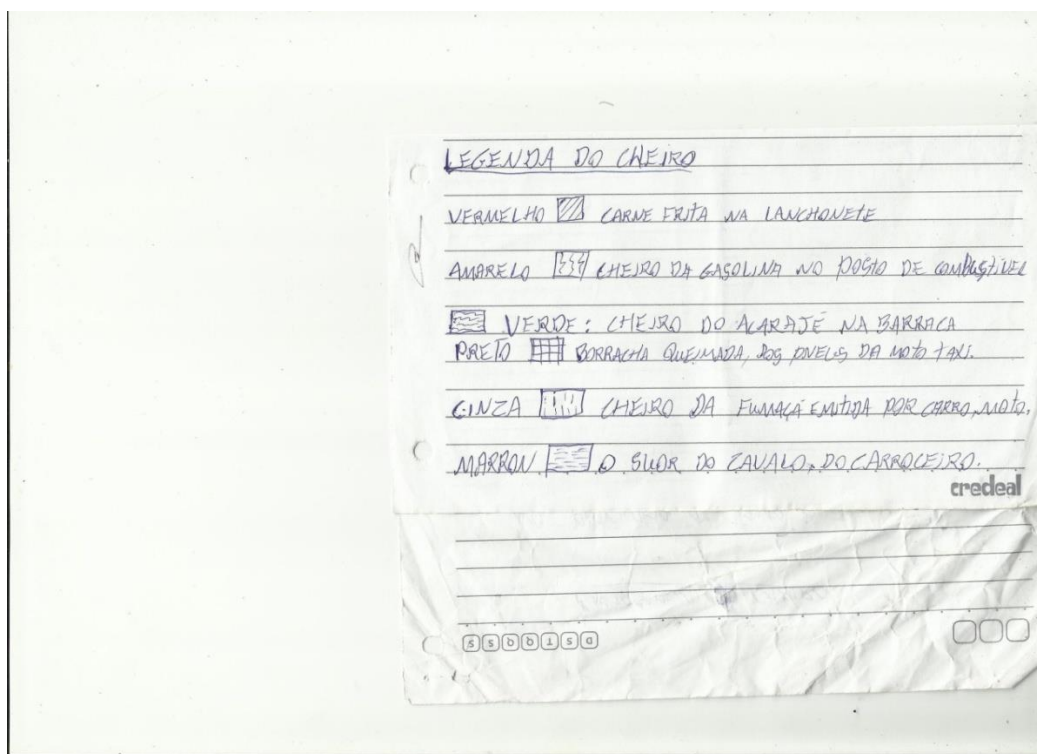 LEGENDA DO CHEIRO
VERMELHO CARNE FRITA NA LANCHONETE
AMARELO CHEIRO DA GASOLINA NO POSTO DE COMBUSTIVEL
VERDE: CHEIRO DO ACARAJÉ NA BARRACA
PRETO BORRACHA QUEIMADA, DOS PNEUS DA MOTO TAXI.
CINZA CHEIRO DA FUMAÇA EMITIDA POR CARRO, MOTO.
MARRON O SUOR DO CAVALO, DO CARROCEIRO.
credeal
D S T Q Q S S